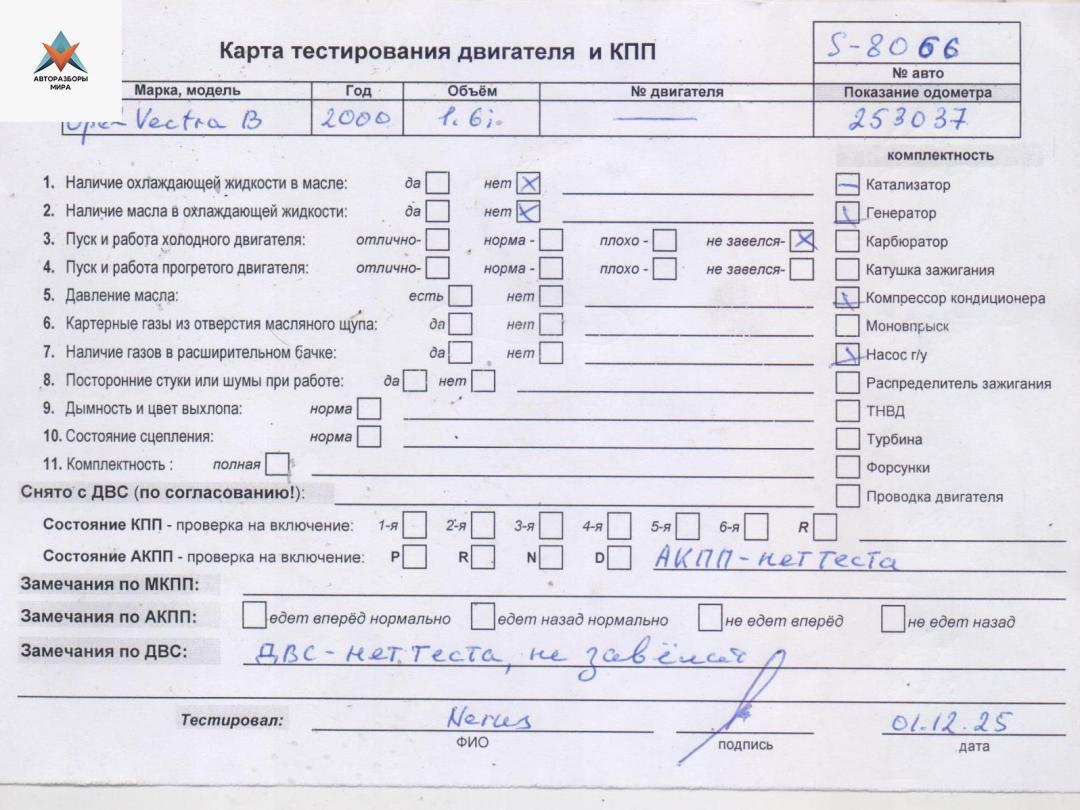 АВТОРАЗБОРЫ
МИРА
Карта тестирования двигателя и КПП
S-8066
№ авто
Марка, модель Год Объём № двигателя Показание одометра
Opel Vectra B 2000 1.6i. — 253037
комплектность
1. Наличие охлаждающей жидкости в масле: да нет
2. Наличие масла в охлаждающей жидкости: да нет
3. Пуск и работа холодного двигателя: отлично- норма - плохо - не завелся-
4. Пуск и работа прогретого двигателя: отлично- норма - плохо - не завелся-
5. Давление масла: есть нет
6. Картерные газы из отверстия масляного щупа: да нет
7. Наличие газов в расширительном бачке: да нет
8. Посторонние стуки или шумы при работе: да нет
9. Дымность и цвет выхлопа: норма
10. Состояние сцепления: норма
11. Комплектность : полная
Катализатор
Генератор
Карбюратор
Катушка зажигания
Компрессор кондиционера
Моновпрыск
Насос г/у
Распределитель зажигания
ТНВД
Турбина
Форсунки
Проводка двигателя
Снято с ДВС (по согласованию!):
Состояние КПП - проверка на включение: 1-я 2-я 3-я 4-я 5-я 6-я R
Состояние АКПП - проверка на включение: P R N D АКПП-нет теста
Замечания по МКПП:
Замечания по АКПП: едет вперёд нормально едет назад нормально не едет вперёд не едет назад
Замечания по ДВС: ДВС-нет теста, не
Тестировал: 01.12.25
ФИО подпись дата